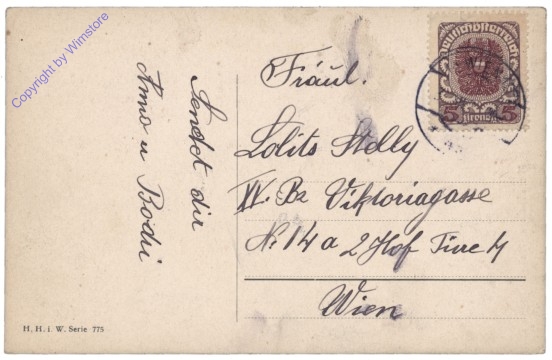 Copyright by Wimstore
Sendet dir
Anna u
Fräul.
Lolits Stelly
Bz Viktoriagasse
Nº 14 a 2 Hof Türe
Wien
Deutschösterreich
5 Kronen 5
H. H. i. W. Serie 775